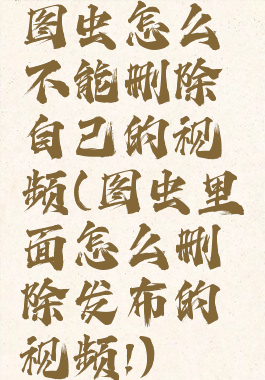 图虫怎么
不能删除
自己的视
频(图虫里
面怎么删
除发布的
视频!)